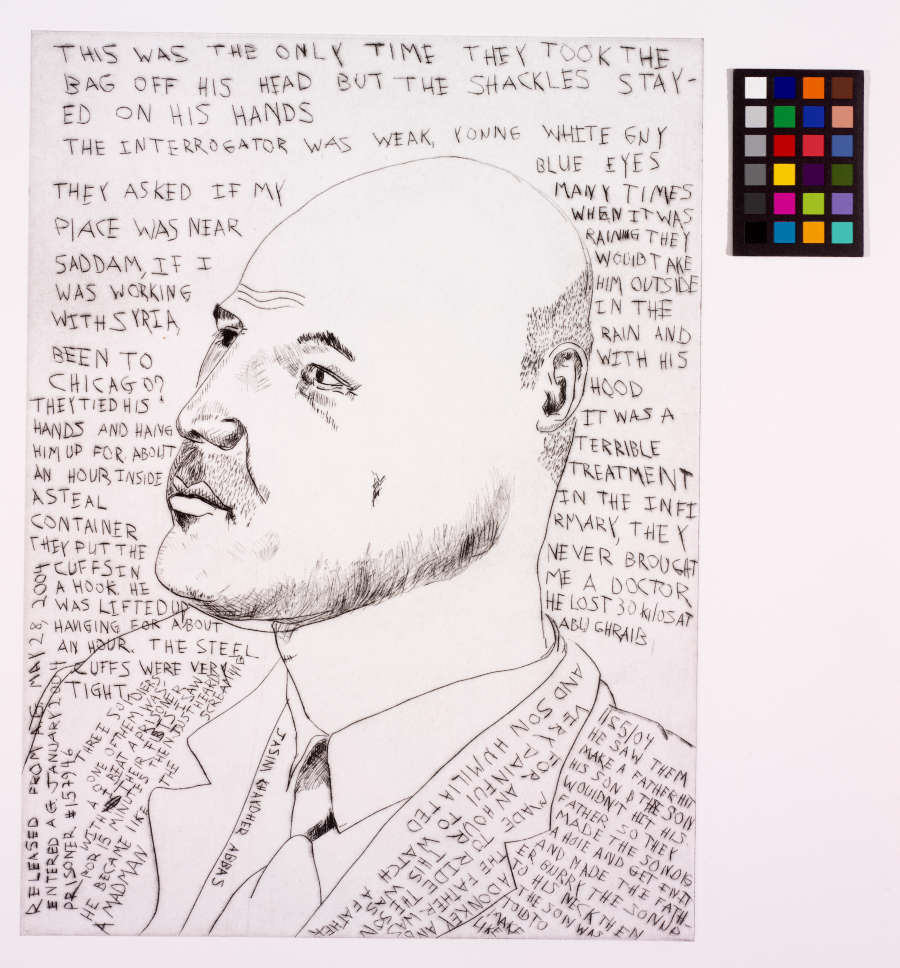 THIS WAS THE ONLY TIME THEY TOOK THE
BAG OFF HIS HEAD BUT THE SHACKLES STAY-
ED ON HIS HANDS
THE INTERROGATOR WAS WEAK, YONNG WHITE GNY
BLUE EYES
THEY ASKED IF MY
PLACE WAS NEAR
SADDAM, IF I
WAS WORKING
WITH SYRIA,
BEEN TO
CHICAGO?
THEY TIED HIS
HANDS AND HANG
HIM UP FOR ABOUT
AN HOUR, INSIDE
A STEAL
CONTAINER
THEY PUT THE
CUFFS IN
A HOOK. HE
WAS LIFTED UP
HANGING FOR ABOUT
AN HOUR. THE STEEL
CUFFS WERE VERY
TIGHT,
MANY TIMES
WHEN IT WAS
RAINING THEY
WOULD TAKE
HIM OUTSIDE
IN THE
RAIN AND
WITH HIS
HOOD
IT WAS A
TERRIBLE
TREATMENT
IN THE INFI
RMARY, THEY
NEVER BROUGHT
ME A DOCTOR
HE LOST 30 KILOS AT
ABU GHRAIB
RELEASED FROM A.G. MAY 28, 2004
ENTERED A.G. JANUARY 2004
PRISONER #157946
THREE SOLDIERS
FOR WITH A ONE OF THEM
HE BECAME MINUTES
A MADMAN LIKE THE
JASIM KHAYDHER ABBAS
AND SON HUMILIATED
VERY PAINFUL TO WATCH
FOR AN HOUR THIS WAS
MADE THE FATHER
A DONKEY AND
1/55/04
HE SAW THEM
MAKE A FATHER HIT
HIS SON & THE SON
WOULDNT HIT HIS
FATHER SO THEY
MADE THE SON DIG
A HOLE AND GET IN IT
AND MADE THE FATH
ER BURRY THE SON
TO HIS NECK THEN